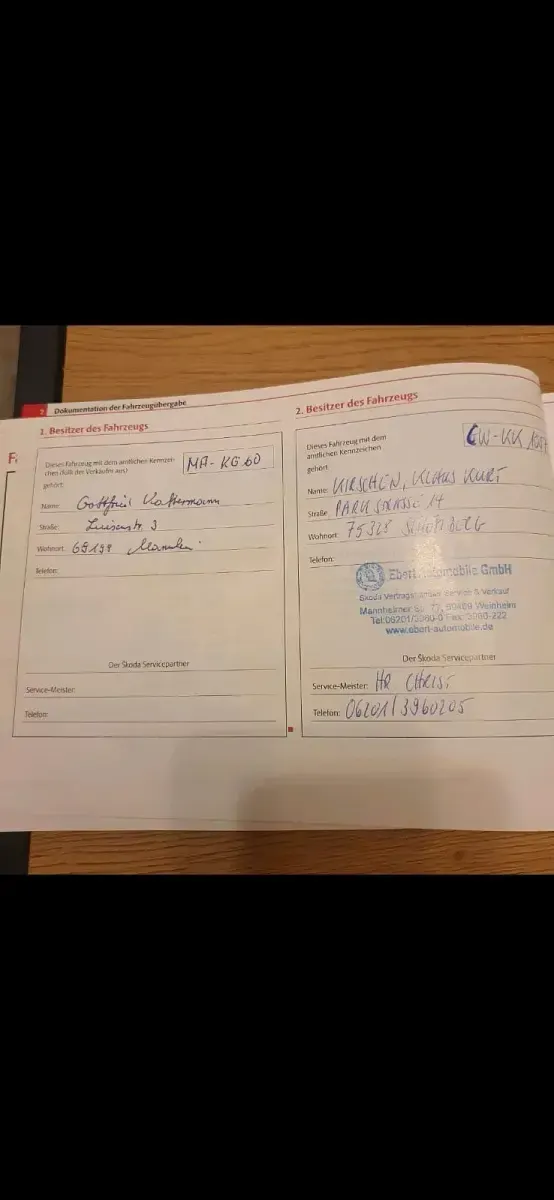 2 Dokumentation der Fahrzeugübergabe
1. Besitzer des Fahrzeugs
Dieses Fahrzeug mit dem amtlichen Kennzei-
chen (falls der Verkaufns aus)
gehört:
MA-KG 60
Name: Gottfried
Straße: Luisenstr. 3
Wohnort:
Telefon:
Der Škoda Servicepartner
Service-Meister:
Telefon:
2. Besitzer des Fahrzeugs
Dieses Fahrzeug mit dem
amtlichen Kennzeichen
gehört:
CW-KK
Name: KIRSCHEN, KLAUS KURT
Straße: PARKSTRASSE 14
Wohnort: 75328 SCHÖMBERG
Telefon:
Ebert Automobile GmbH
Skoda Service & Verkauf
Mannheimer Str. 77, 69469 Weinheim
Tel. 06201/3960-0 Fax: 3960-222
www.ebert-automobile.de
Der Škoda Servicepartner
Service-Meister: HR CHRIST
Telefon: 06201/3960205